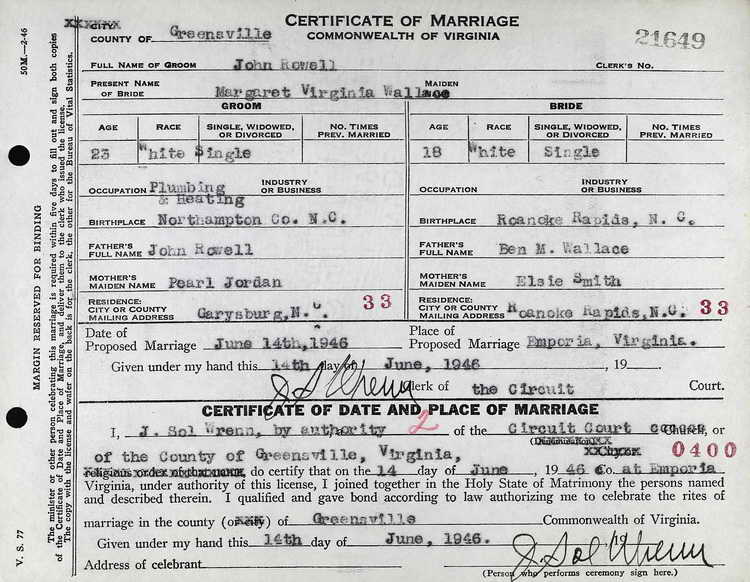 CERTIFICATE OF MARRIAGE
COMMONWEALTH OF VIRGINIA
CITY
COUNTY OF Greensville
21649
FULL NAME OF GROOM John Rowell CLERK'S NO.
PRESENT NAME OF BRIDE Margaret Virginia Wallace MAIDEN
GROOM BRIDE
AGE RACE SINGLE, WIDOWED, OR DIVORCED NO. TIMES PREV. MARRIED AGE RACE SINGLE, WIDOWED, OR DIVORCED NO. TIMES PREV. MARRIED
23 White Single 18 White Single
OCCUPATION Plumbing & Heating INDUSTRY OR BUSINESS OCCUPATION INDUSTRY OR BUSINESS
BIRTHPLACE Northampton Co. N.C. BIRTHPLACE Roanoke Rapids, N. C.
FATHER'S FULL NAME John Rowell FATHER'S FULL NAME Ben M. Wallace
MOTHER'S MAIDEN NAME Pearl Jordan MOTHER'S MAIDEN NAME Elsie Smith
RESIDENCE: CITY OR COUNTY MAILING ADDRESS Garysburg, N.C. 33 RESIDENCE: CITY OR COUNTY MAILING ADDRESS Roanoke Rapids, N.C. 33
Date of Proposed Marriage June 14th, 1946 Place of Proposed Marriage Emporia, Virginia.
Given under my hand this 14th day of June, 1946 , 19
J. Sol Wrenn Clerk of the Circuit Court.
CERTIFICATE OF DATE AND PLACE OF MARRIAGE
I, J. Sol Wrenn, by authority 2 of the Circuit Court Church, or
(Denomination)
of the County of Greensville, Virginia, 0400
religious order of that name, do certify that on the 14 day of June , 19 46 Co. at Emporia
Virginia, under authority of this license, I joined together in the Holy State of Matrimony the persons named
and described therein. I qualified and gave bond according to law authorizing me to celebrate the rites of
marriage in the county (or city) of Greensville Commonwealth of Virginia.
Given under my hand this 14th day of June, 1946. , 19
J. Sol Wrenn
Address of celebrant
(Person who performs ceremony sign here.)
50M.—2-46
V. S. 77
MARGIN RESERVED FOR BINDING
The minister or other person celebrating this marriage is required within five days to fill out and sign both copies
of the Certificate of Date and Place of Marriage and deliver them to the clerk who issued the license.
The copy with the license and wafer on the back is for the clerk, the other for the Bureau of Vital Statistics.